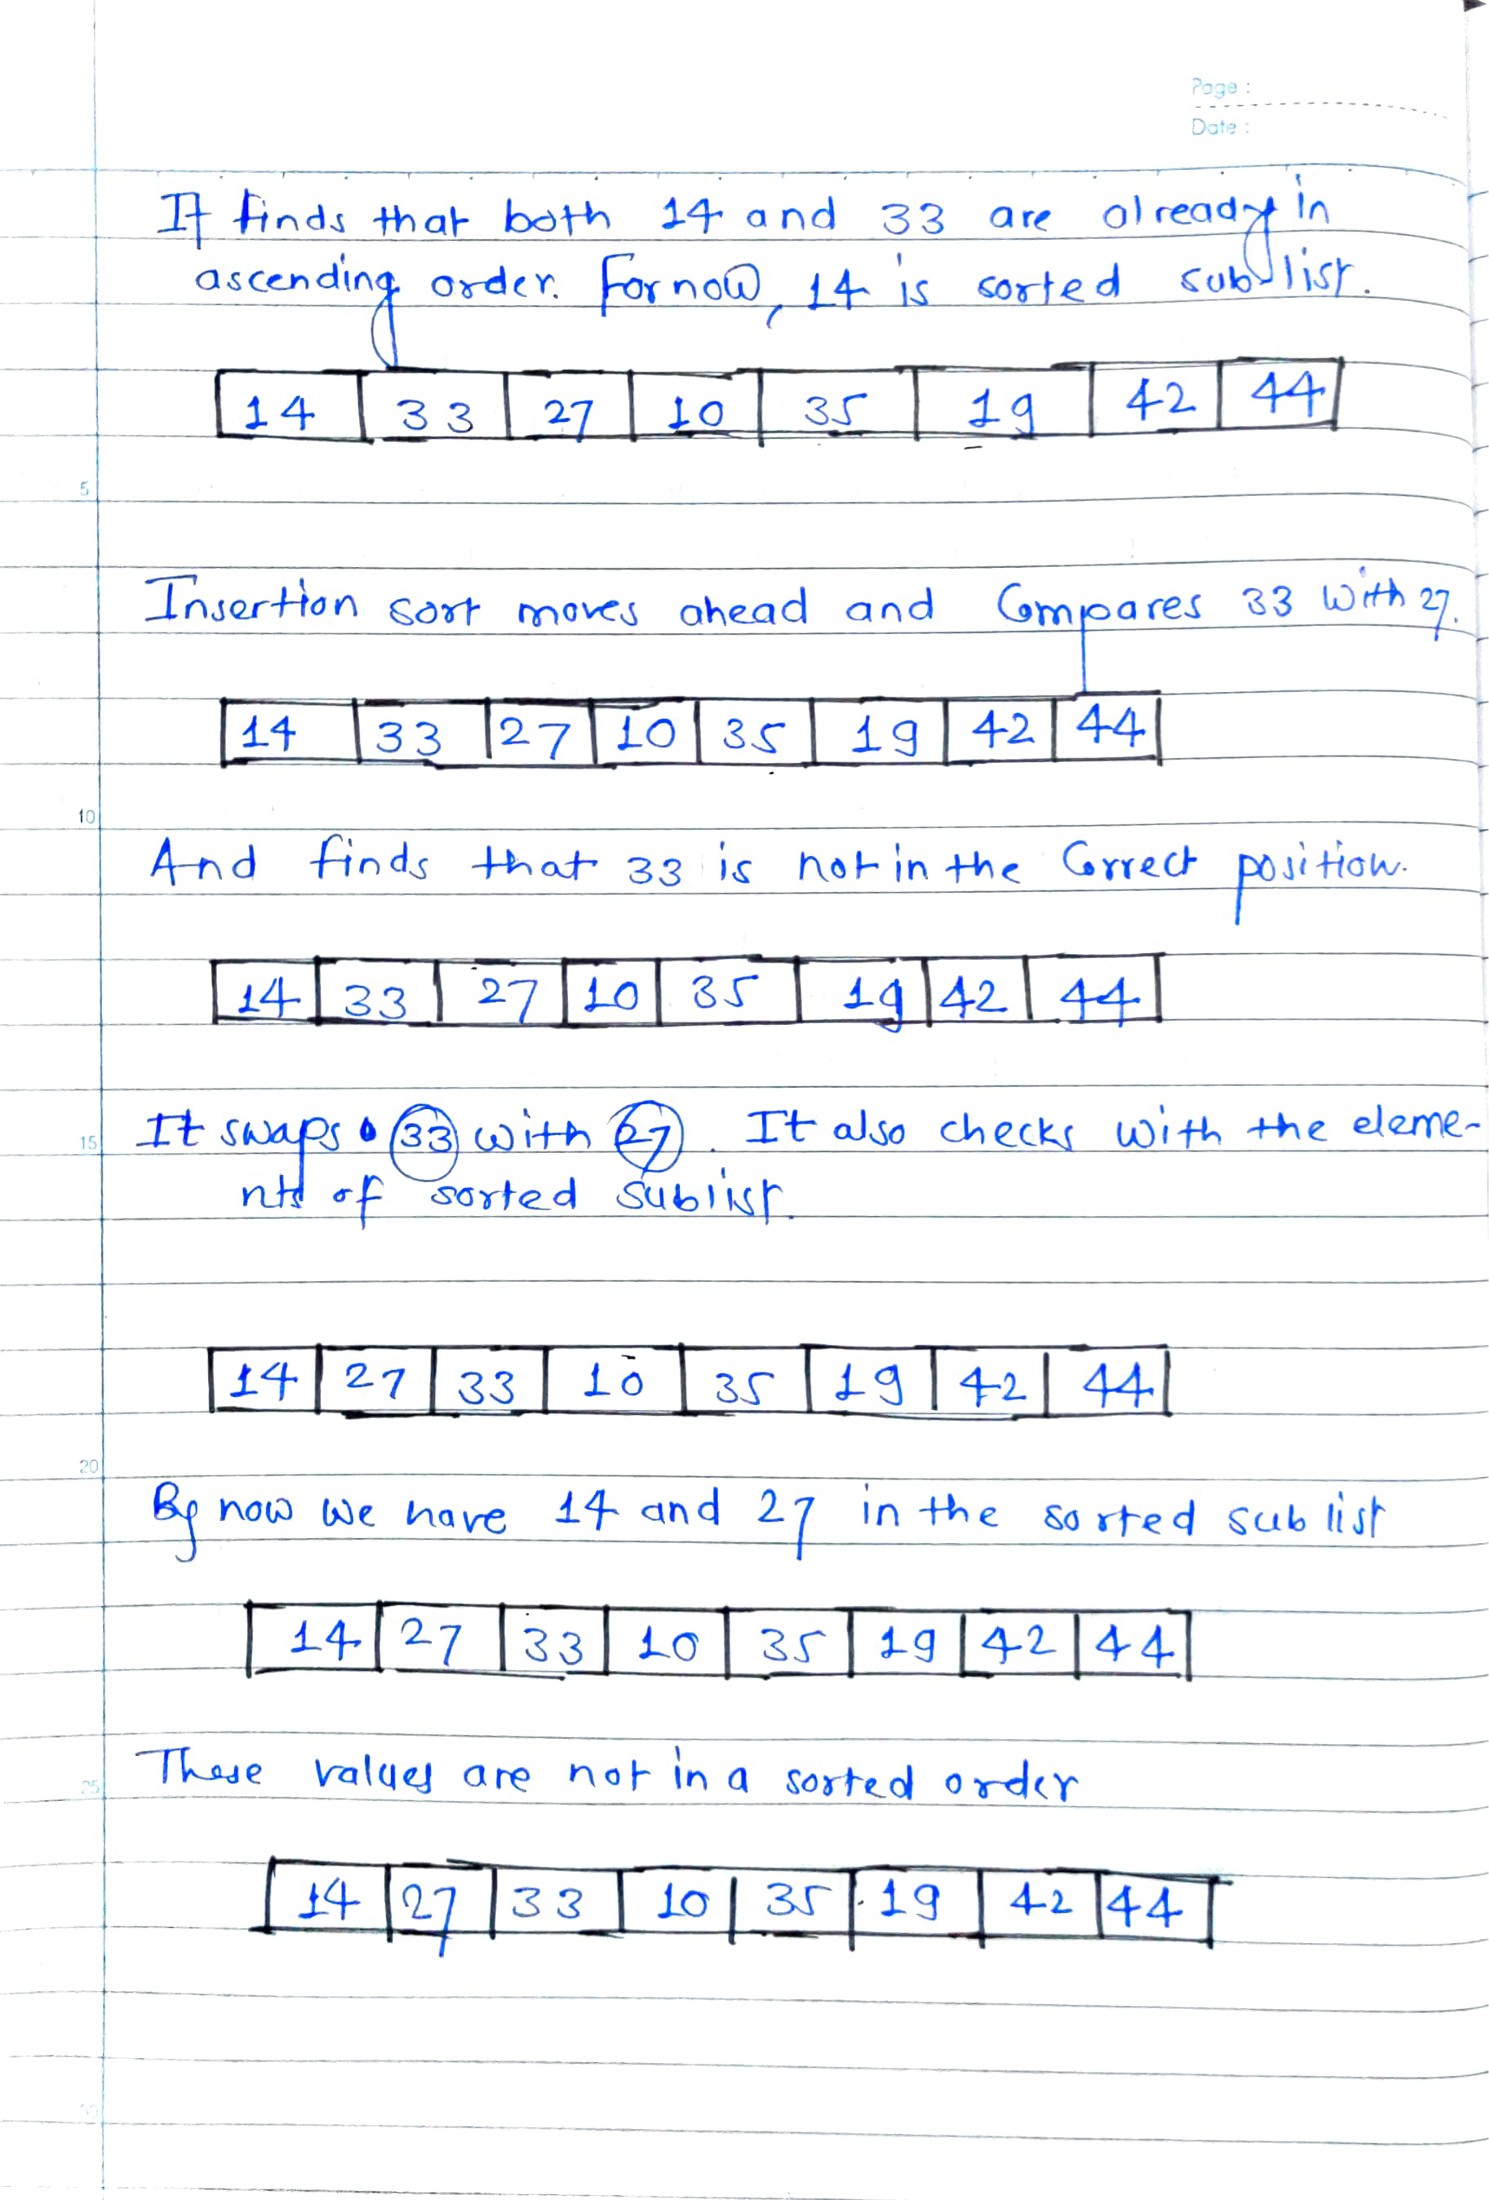 Page :
Date :
It finds that both 14 and 33 are already in
ascending order. For now, 14 is sorted sublist.
14 33 27 10 35 19 42 44
5
Insertion sort moves ahead and Compares 33 with 27.
14 33 27 10 35 19 42 44
10
And finds that 33 is not in the Correct position.
14 33 27 10 35 19 42 44
15
It swaps 33 with 27. It also checks with the eleme-
nts of sorted sublist.
14 27 33 10 35 19 42 44
20
By now we have 14 and 27 in the sorted sublist
14 27 33 10 35 19 42 44
25
These values are not in a sorted order
14 27 33 10 35 19 42 44
30